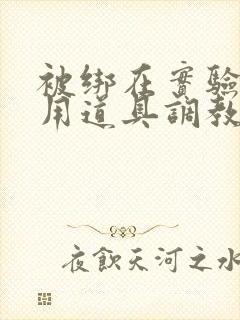 被绑在實驗
用道具調教
夜飲天河之水